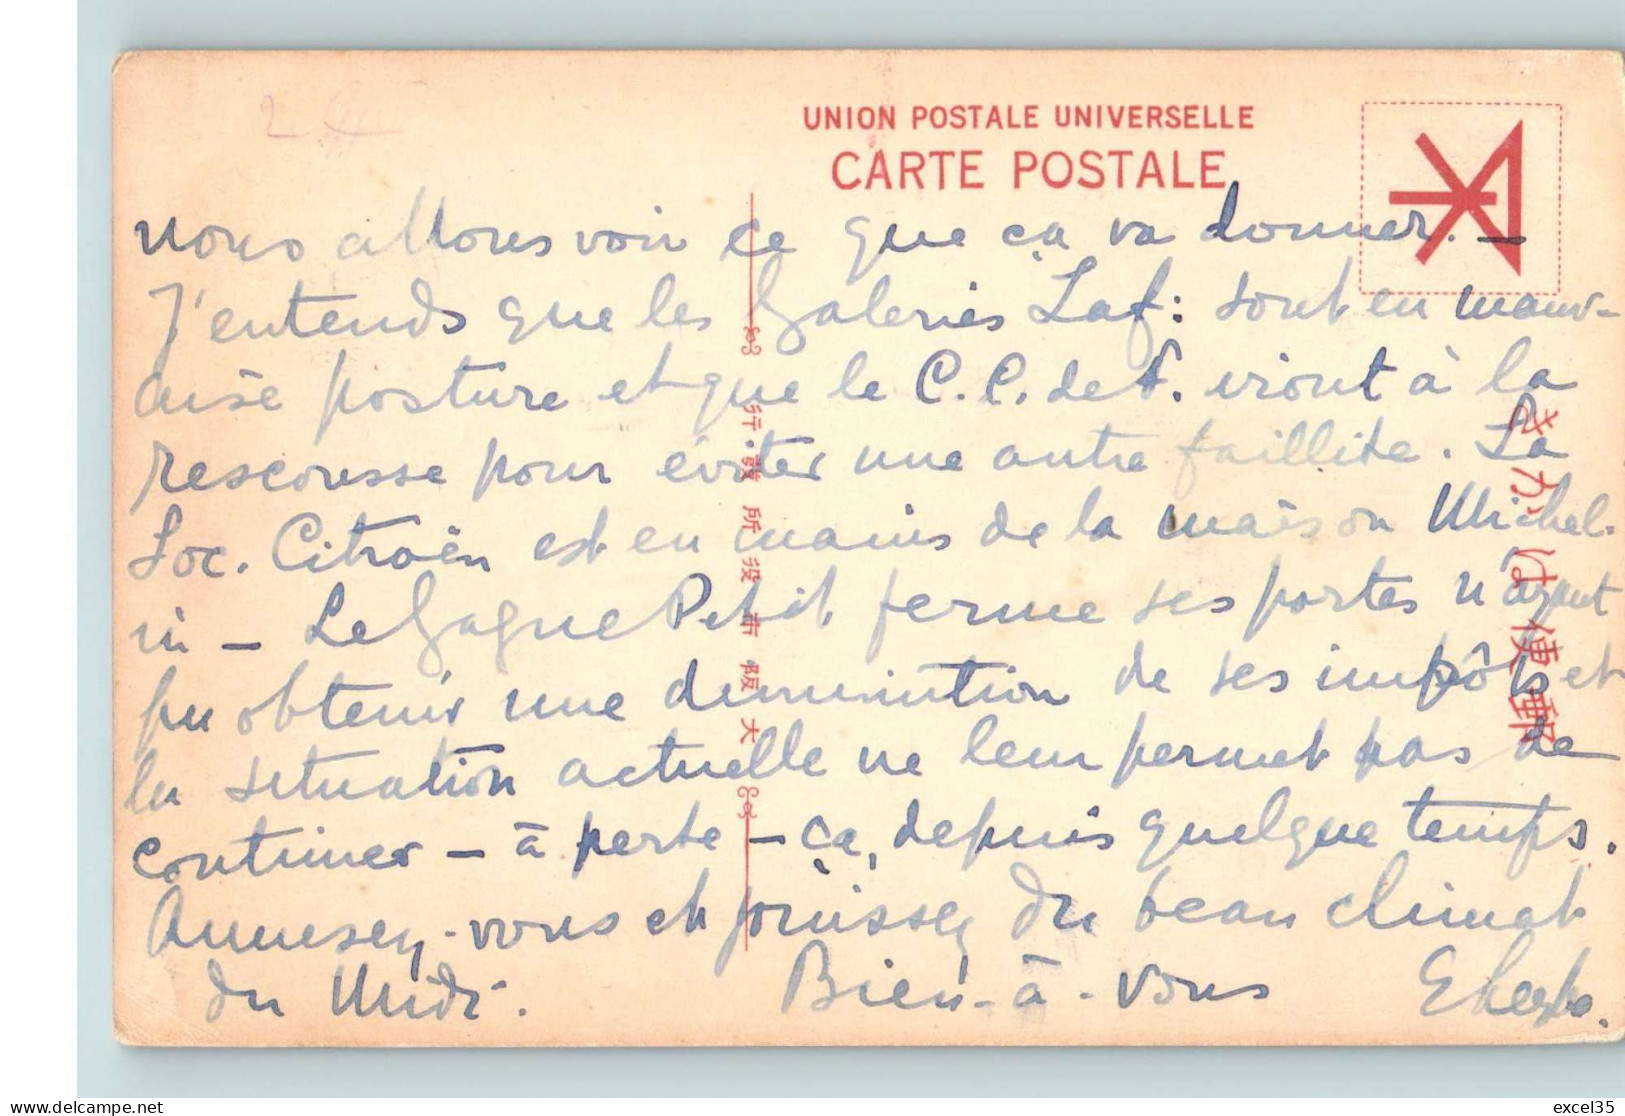 UNION POSTALE UNIVERSELLE
CARTE POSTALE
nous allons voir ce que ça va donner. —
J'entends que les Galeries Laf: sont en mauv-
aise posture et que le C.C. de F. iront à la
rescousse pour éviter une autre faillite. La
Soc. Citroën est en mains de la maison Michel-
in — Le Gagne Petit ferme ses portes n'ayant
pu obtenir une diminution de ses impôts et
la situation actuelle ne leur permet pas de
continuer — à perte — ça, depuis quelque temps.
Amusez-vous et jouissez du beau climat
du Midi. Bien-à-vous
きかは便郵
行發所役市阪大
delcampe.net
excel35